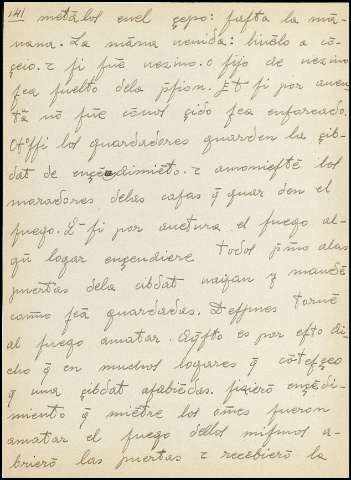 141 metālos enel çepo: fasta la mā-
nana. La mānа uenida: lieuēlo a cō-
çeio. τ si fuē uezino. o fijo de uezino
sea suelto dela p̄sion. Et si por auen
tā nō fuē cōnos çido sea enforcado.
Otossi los guardadores guarden la çib-
dat de ençēdimiēto. τ amoniestē los
moradores delas casas q̄ guar den el
fuego. E si por auētura el fuego al-
gū logar ençendiere todos p̄mo alas
puertas dela cibdat uaẏan ẏ mandē
como seā guardadas. Despues tornē
al fuego amatar. Aq̄sto es por esto di-
cho q̄ en muchos logares q̄ cōtesçeo
q̄ una çibdat asabiēdas. fizierō ençēdi-
miento q̄ miētre los oēs fueron
amatar el fuego dellos mismos a-
brierō las puertas τ recebierō la